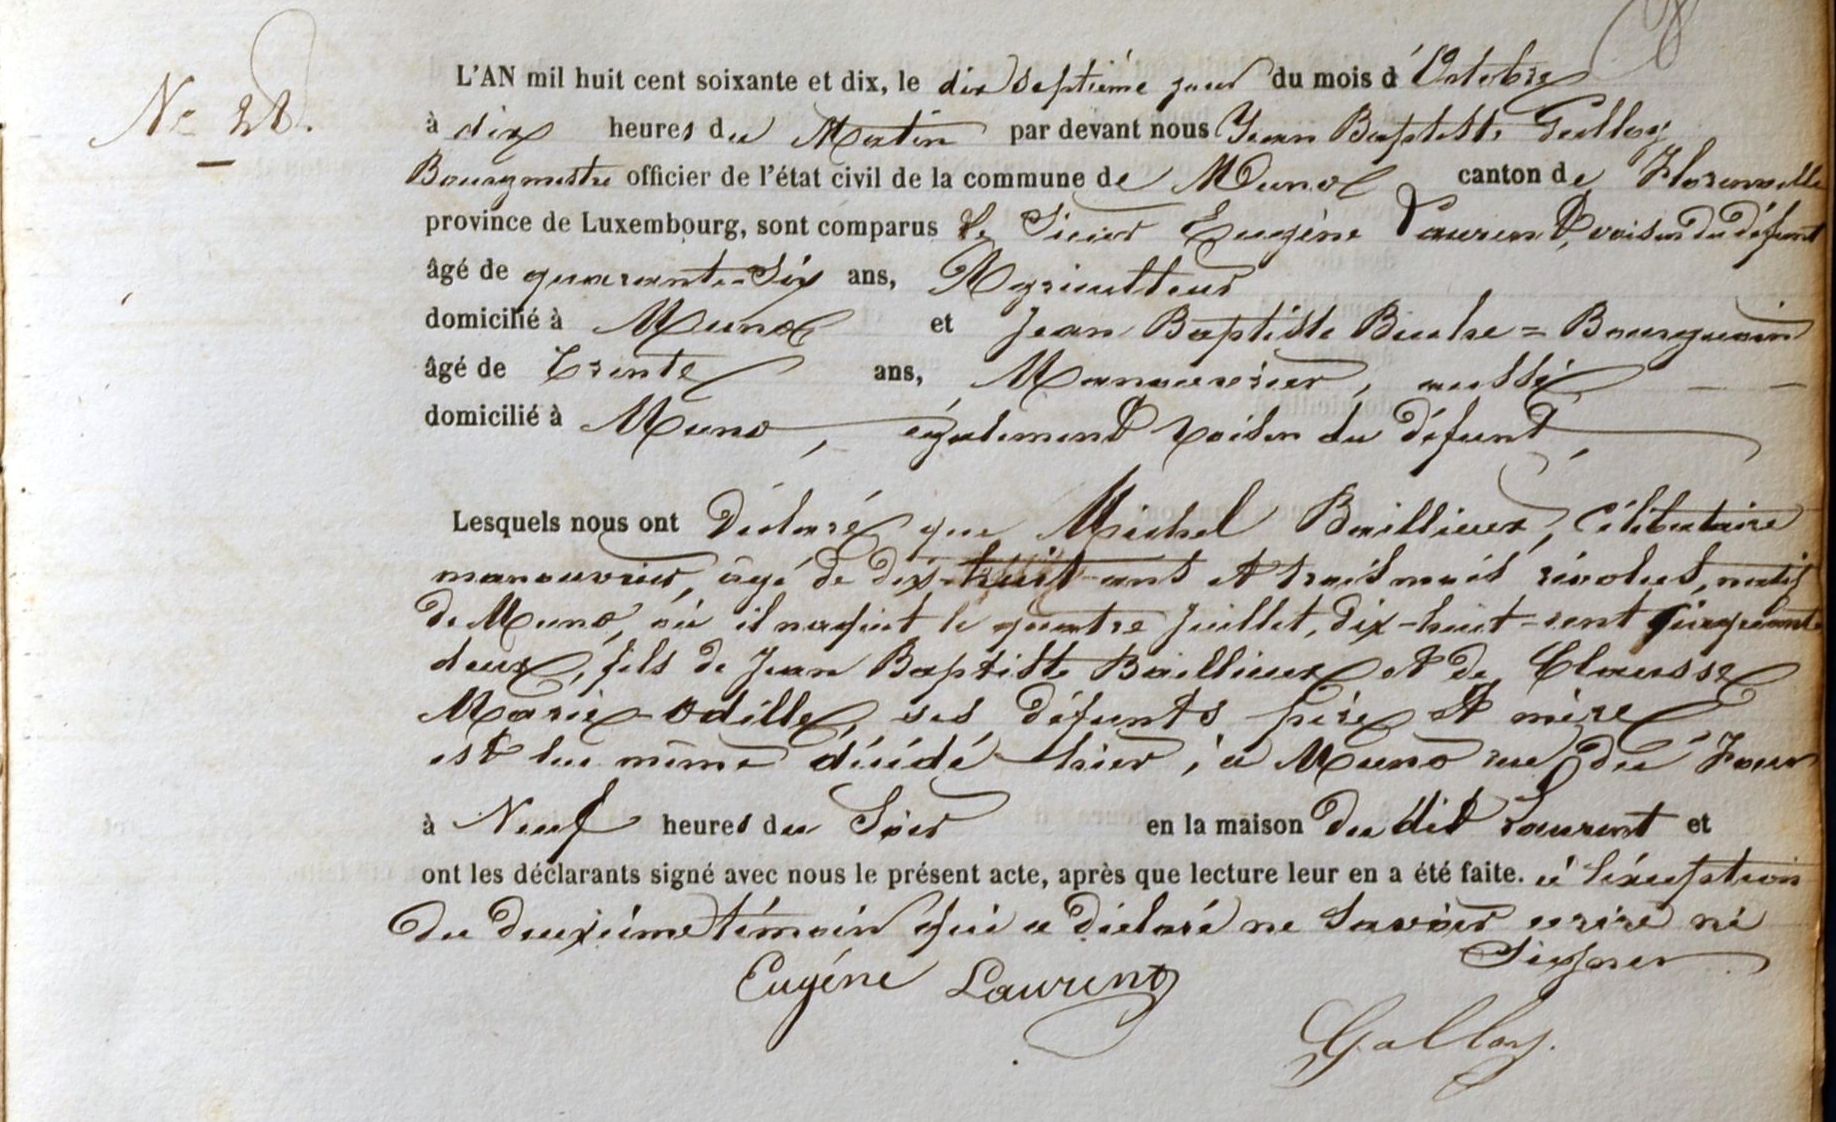 N° 28.
L'AN mil huit cent soixante et dix, le dix septième jour du mois d'Octobre
à dix heures du Matin par devant nous Jean Baptiste Galloy
Bourgmestre officier de l'état civil de la commune de Muno canton de Florenville
province de Luxembourg, sont comparus le Sieur Eugène Laurent, voisin du défunt
âgé de quarante-six ans, Agriculteur
domicilié à Muno et Jean Baptiste Buche = Bourguain
âgé de trente ans, Manouvrier, aussi
domicilié à Muno, également voisin du défunt,
Lesquels nous ont déclaré que Michel Baillieux, Célibataire
manouvrier, âgé de dix-huit ans et trois mois révolus, natif
de Muno, où il naquit le quatre Juillet, dix-huit-cent cinquante
deux, fils de Jean Baptiste Baillieux et de Clausse
Marie-Odille, ses défunts père et mère
est lui même décédé hier, à Muno rue du Four
à Neuf heures du Soir en la maison du dit Laurent et
ont les déclarants signé avec nous le présent acte, après que lecture leur en a été faite. à l'éxception
du deuxième témoin qui a déclaré ne savoir ecrire ni
Signer
Eugéne Laurent
Galloy.